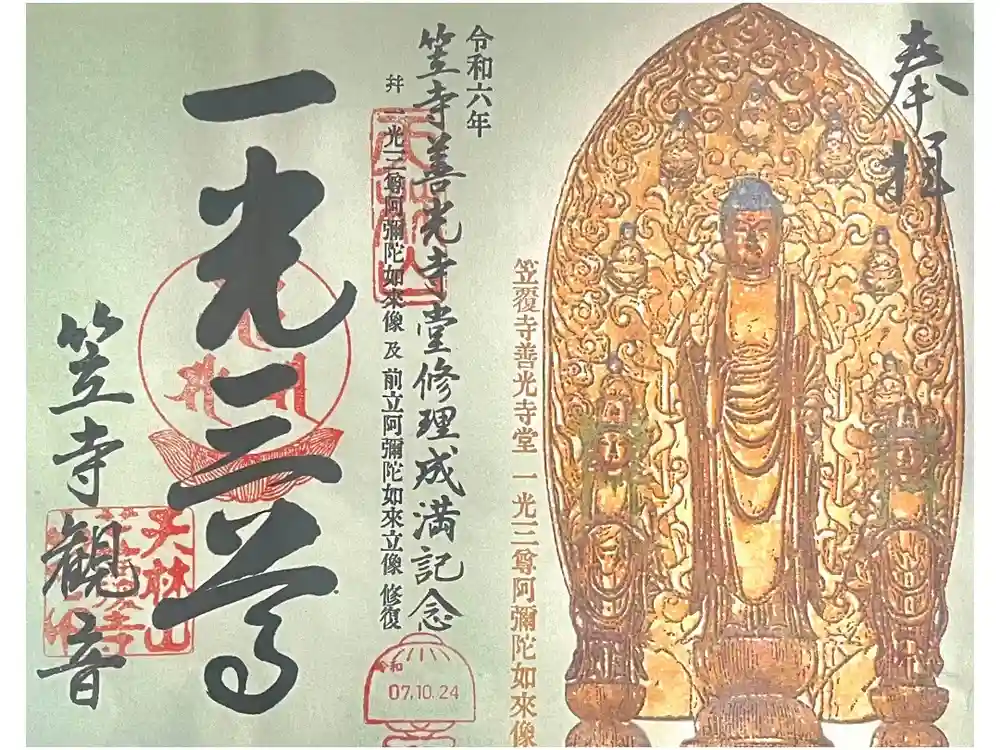 奉拝
笠覆寺善光寺堂 一光三尊阿彌陀如來像
令和六年
笠寺善光寺堂修理成満記念
幷 一光三尊阿彌陀如來像 及 前立阿彌陀如來立像 修復
令和
07.10.24
一光三尊
天林山
笠寺観音